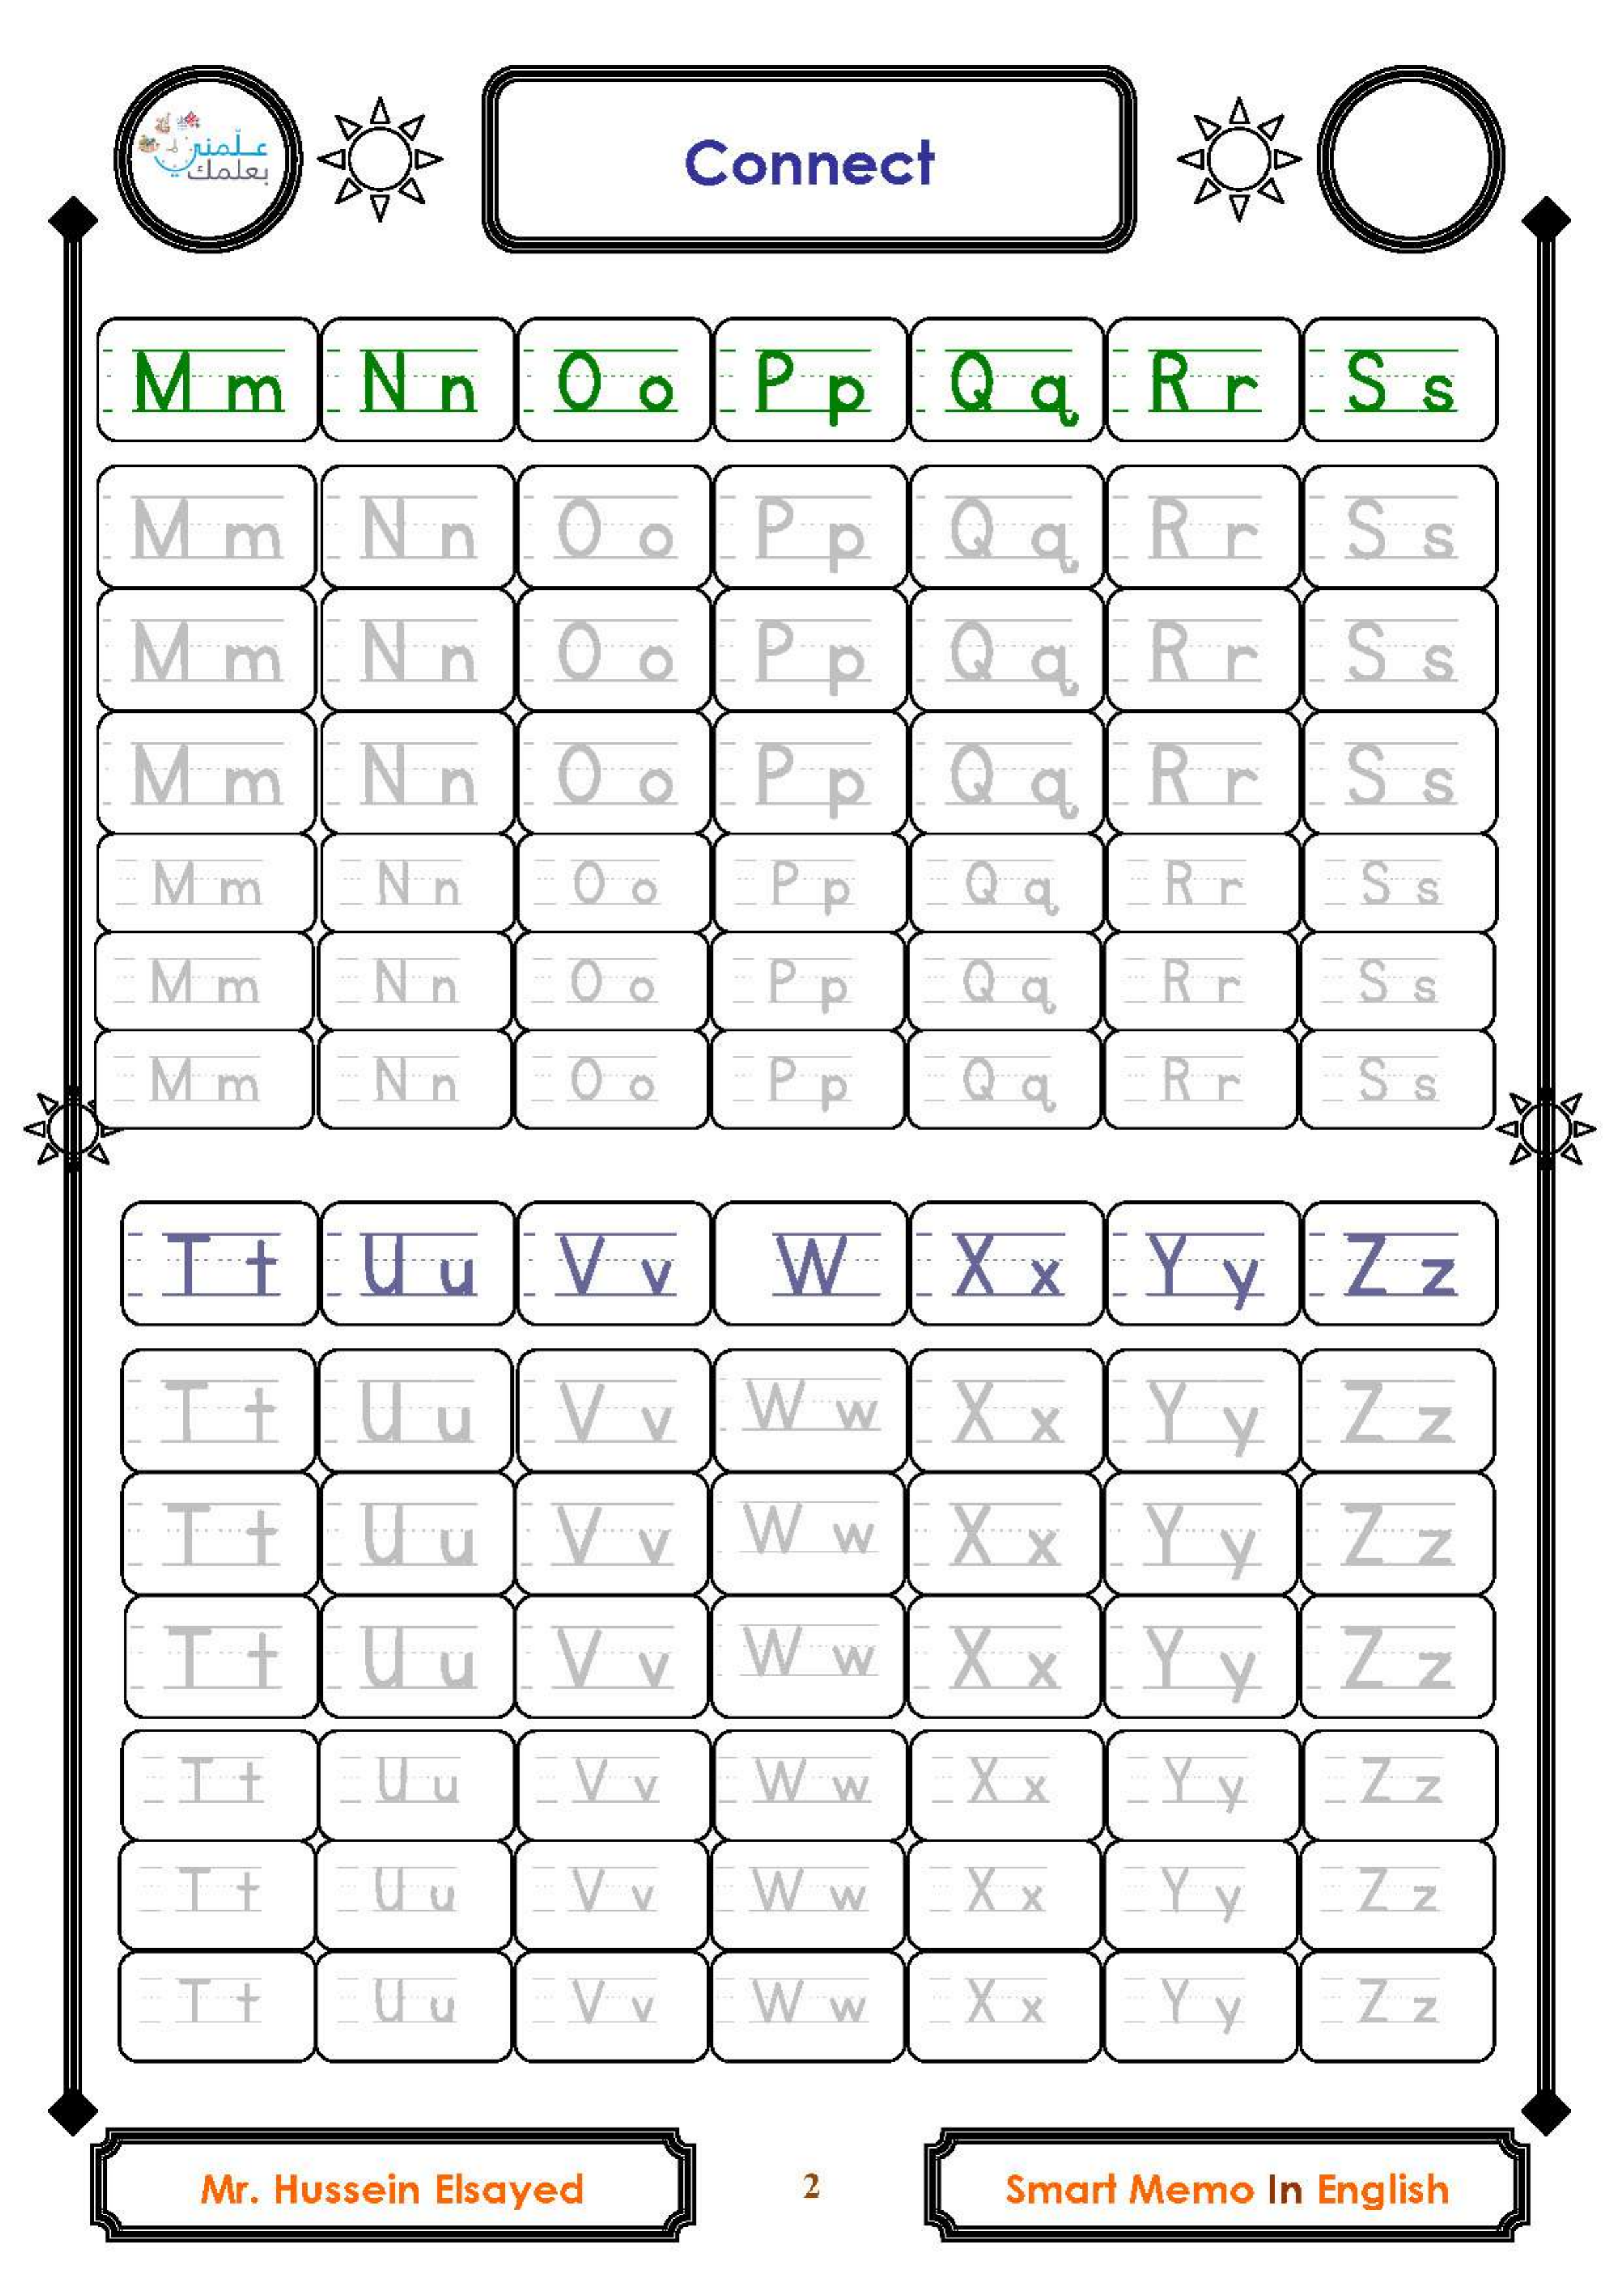 علّمني
بعلمك
Connect
M m N n O o P p Q q R r S s
M m N n O o P p Q q R r S s
M m N n O o P p Q q R r S s
M m N n O o P p Q q R r S s
M m N n O o P p Q q R r S s
M m N n O o P p Q q R r S s
M m N n O o P p Q q R r S s
T t U u V v W X x Y y Z z
T t U u V v W w X x Y y Z z
T t U u V v W w X x Y y Z z
T t U u V v W w X x Y y Z z
T t U u V v W w X x Y y Z z
T t U u V v W w X x Y y Z z
T t U u V v W w X x Y y Z z
Mr. Hussein Elsayed 2 Smart Memo In English